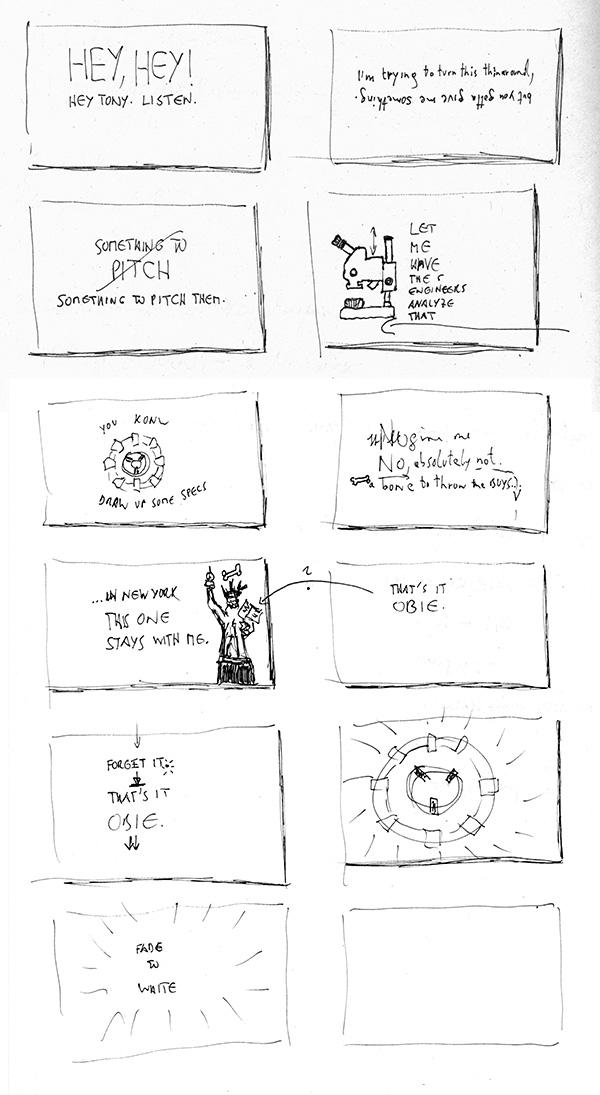 HEY, HEY!
HEY TONY. LISTEN.
I'm trying to turn this thinaround,
but you gotta give me something.
SOMETHING TO
PITCH
SOMETHING TO PITCH THEM.
LET
ME
HAVE
THE
ENGINEERS
ANALYZE
THAT
YOU KONW
DRAW UP SOME SPECS
give me
NO, absolutely not.
a bone to throw the GUYS..
...IN NEW YORK
THIS ONE
STAYS WITH ME.
?
THAT'S IT
OBIE.
FORGET IT.
THAT'S IT
OBIE.
FADE
TO
WHITE